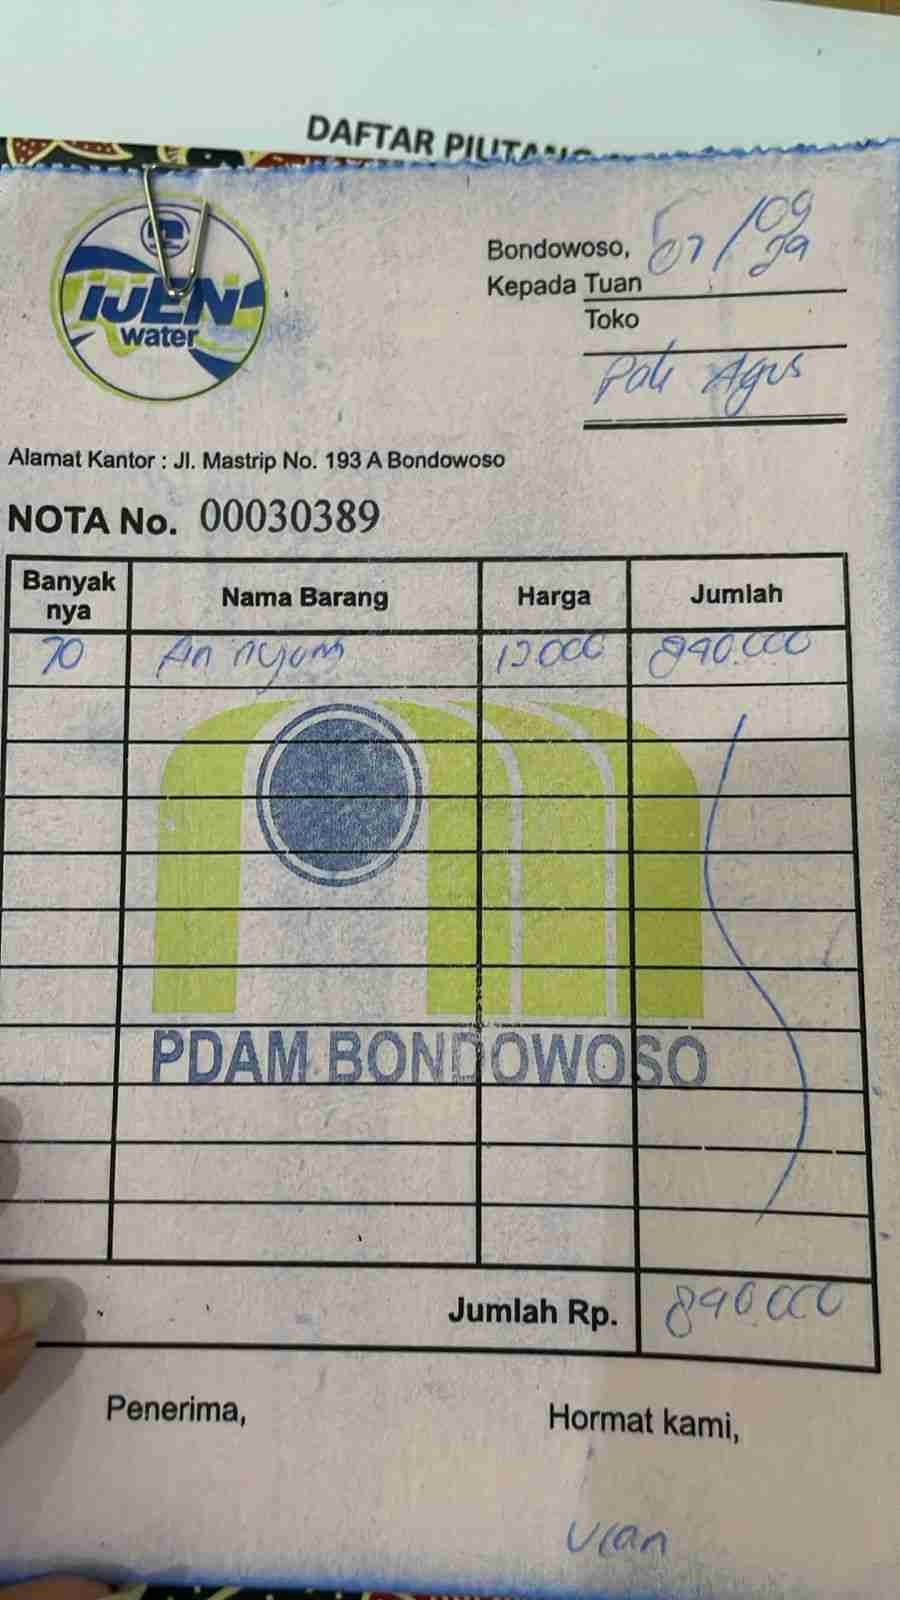 DAFTAR PIUTANG
IJEN
water
Bondowoso, 07/09
Kepada Tuan
Toko
Pak Agus
Alamat Kantor : Jl. Mastrip No. 193 A Bondowoso
NOTA No. 00030389
Banyak nya Nama Barang Harga Jumlah
70 12000 840.000
PDAM BONDOWOSO
Jumlah Rp. 840.000
Penerima, Hormat kami,